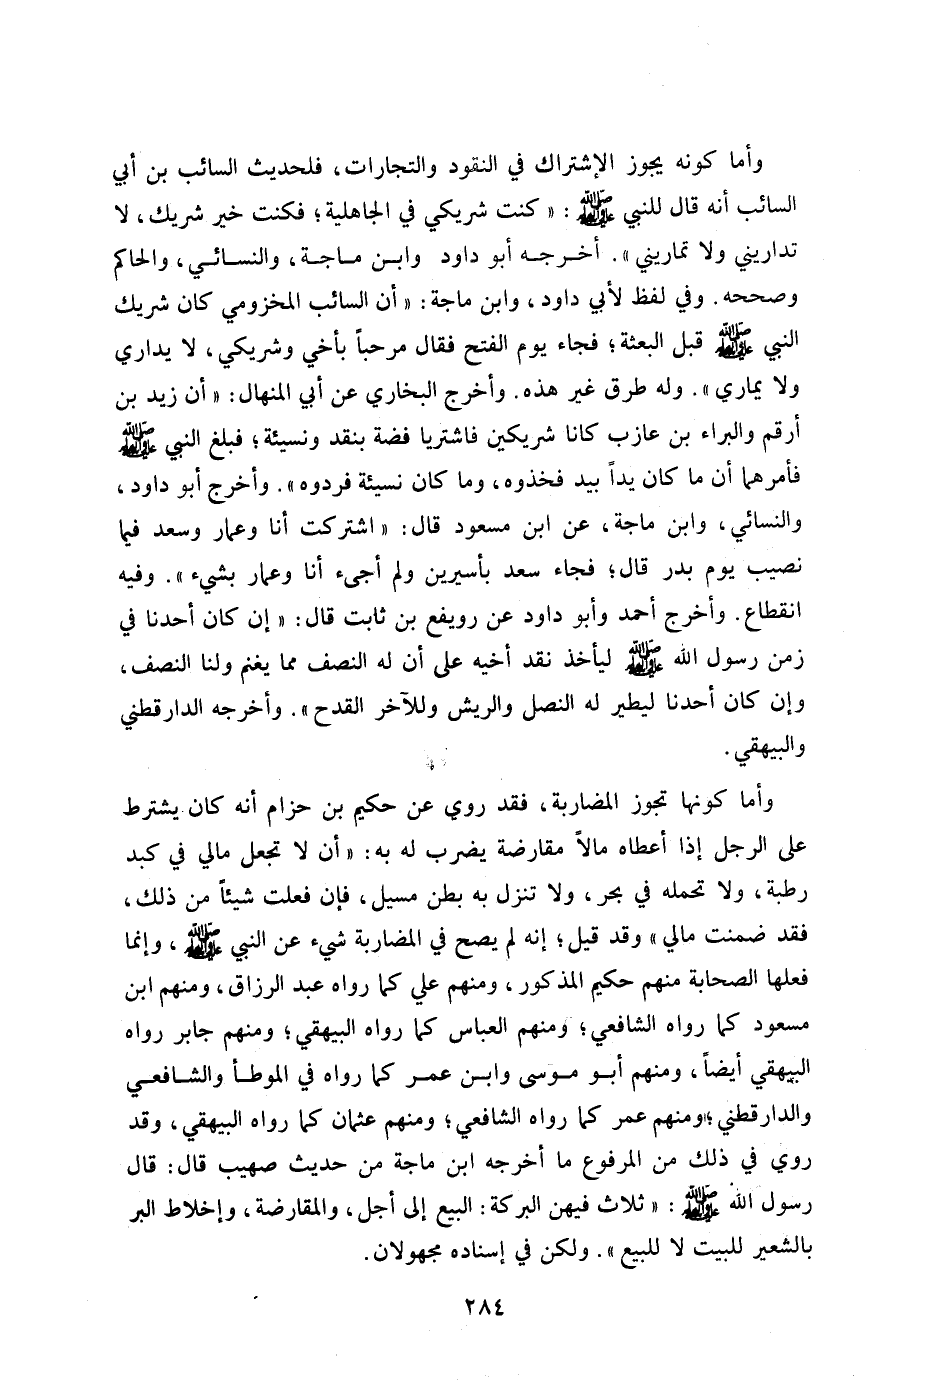 وأما كونه يجوز الإشتراك في النقود والتجارات، فلحديث السائب بن أبي
السائب أنه قال للنبي ﷺ : « كنت شريكي في الجاهلية؛ فكنت خير شريك، لا
تداريني ولا تماريني». أخرجه أبو داود وابن ماجة، والنسائي، والحاكم
وصححه. وفي لفظ لأبي داود، وابن ماجة: « أن السائب المخزومي كان شريك
النبي ﷺ قبل البعثة؛ فجاء يوم الفتح فقال مرحباً بأخي وشريكي، لا يداري
ولا يماري». وله طرق غير هذه. وأخرج البخاري عن أبي المنهال: « أن زيد بن
أرقم والبراء بن عازب كانا شريكين فاشتريا فضة بنقد ونسيئة؛ فبلغ النبي ﷺ
فأمرهما أن ما كان يداً بيد فخذوه، وما كان نسيئة فردوه». وأخرج أبو داود،
والنسائي، وابن ماجة، عن ابن مسعود قال: « اشتركت أنا وعمار وسعد فيما
نصيب يوم بدر قال؛ فجاء سعد بأسيرين ولم أجىء أنا وعمار بشيء ». وفيه
انقطاع. وأخرج أحمد وأبو داود عن رويفع بن ثابت قال: « إن كان أحدنا في
زمن رسول الله ﷺ ليأخذ نقد أخيه على أن له النصف مما يغنم ولنا النصف،
وإن كان أحدنا ليطير له النصل والريش وللآخر القدح ». وأخرجه الدارقطني
والبيهقي.
وأما كونها تجوز المضاربة، فقد روي عن حكيم بن حزام أنه كان يشترط
على الرجل إذا أعطاه مالاً مقارضة يضرب له به: « أن لا تجعل مالي في كبد
رطبة، ولا تحمله في بحر، ولا تنزل به بطن مسيل، فإن فعلت شيئاً من ذلك،
فقد ضمنت مالي» وقد قيل؛ إنه لم يصح في المضاربة شيء عن النبي ﷺ ، وإنما
فعلها الصحابة منهم حكيم المذكور، ومنهم علي كما رواه عبد الرزاق، ومنهم ابن
مسعود كما رواه الشافعي؛ ومنهم العباس كما رواه البيهقي؛ ومنهم جابر رواه
البيهقي أيضاً، ومنهم أبو موسى وابن عمر كما رواه في الموطأ والشافعي
والدارقطني؛ ومنهم عمر كما رواه الشافعي؛ ومنهم عثمان كما رواه البيهقي، وقد
روي في ذلك من المرفوع ما أخرجه ابن ماجة من حديث صهيب قال: قال
رسول الله ﷺ : « ثلاث فيهن البركة: البيع إلى أجل، والمقارضة، وإخلاط البر
بالشعير للبيت لا للبيع ». ولكن في إسناده مجهولان.
٢٨٤